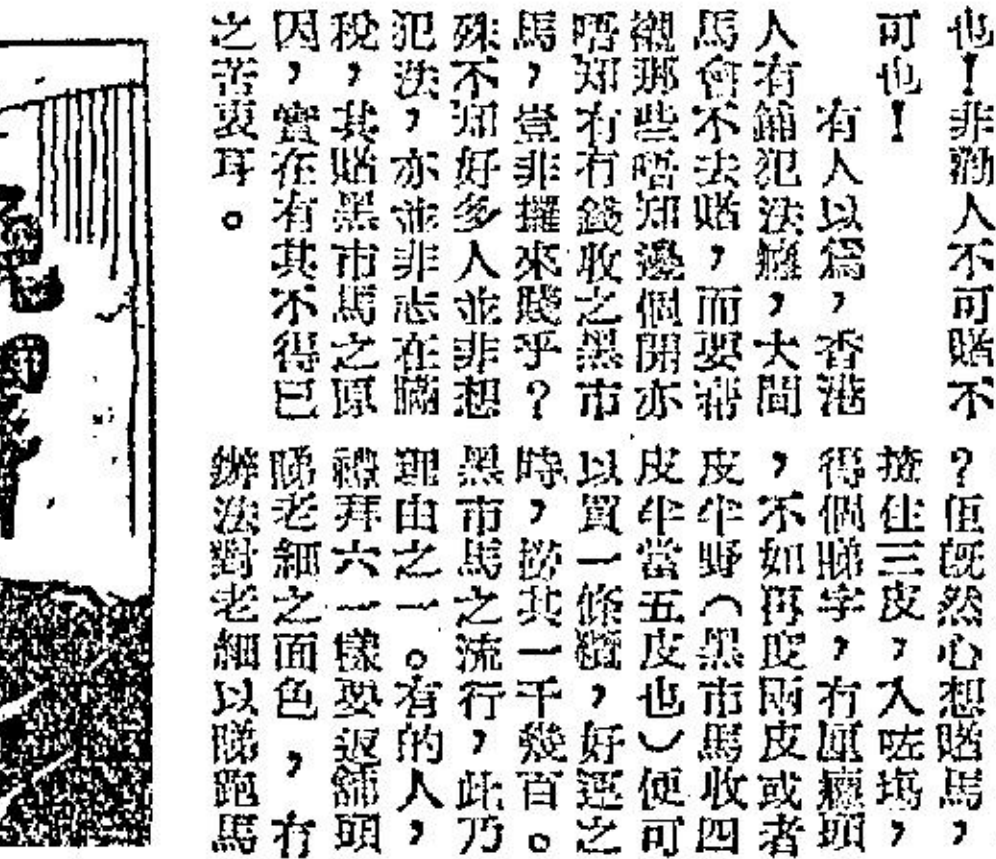 也！非勸人不可賭不
可也！
有人以爲，香港
人有鋪犯法癮，大間
馬會不去賭，而要幇
襯那些唔知邊個開亦
唔知冇冇錢收之黑市
馬，豈非攞來賤乎？
殊不知好多人並非想
犯法，亦並非志在瞞
稅，其賭黑市馬之原
因，實在有其不得已
之苦衷耳。
？但旣然心想賭馬，
揸住三皮，入咗塲，
得個睇字，冇厘癮頭
，不如再度兩皮或者
皮半野（黑市馬收四
皮半當五皮也）便可
以買一條纜，好運之
時，撈其一千幾百。
黑市馬之流行，此乃
理由之一。有的人，
禮拜六一樣要返舖頭
睇老細之面色，冇
辦法對老細以睇跑馬